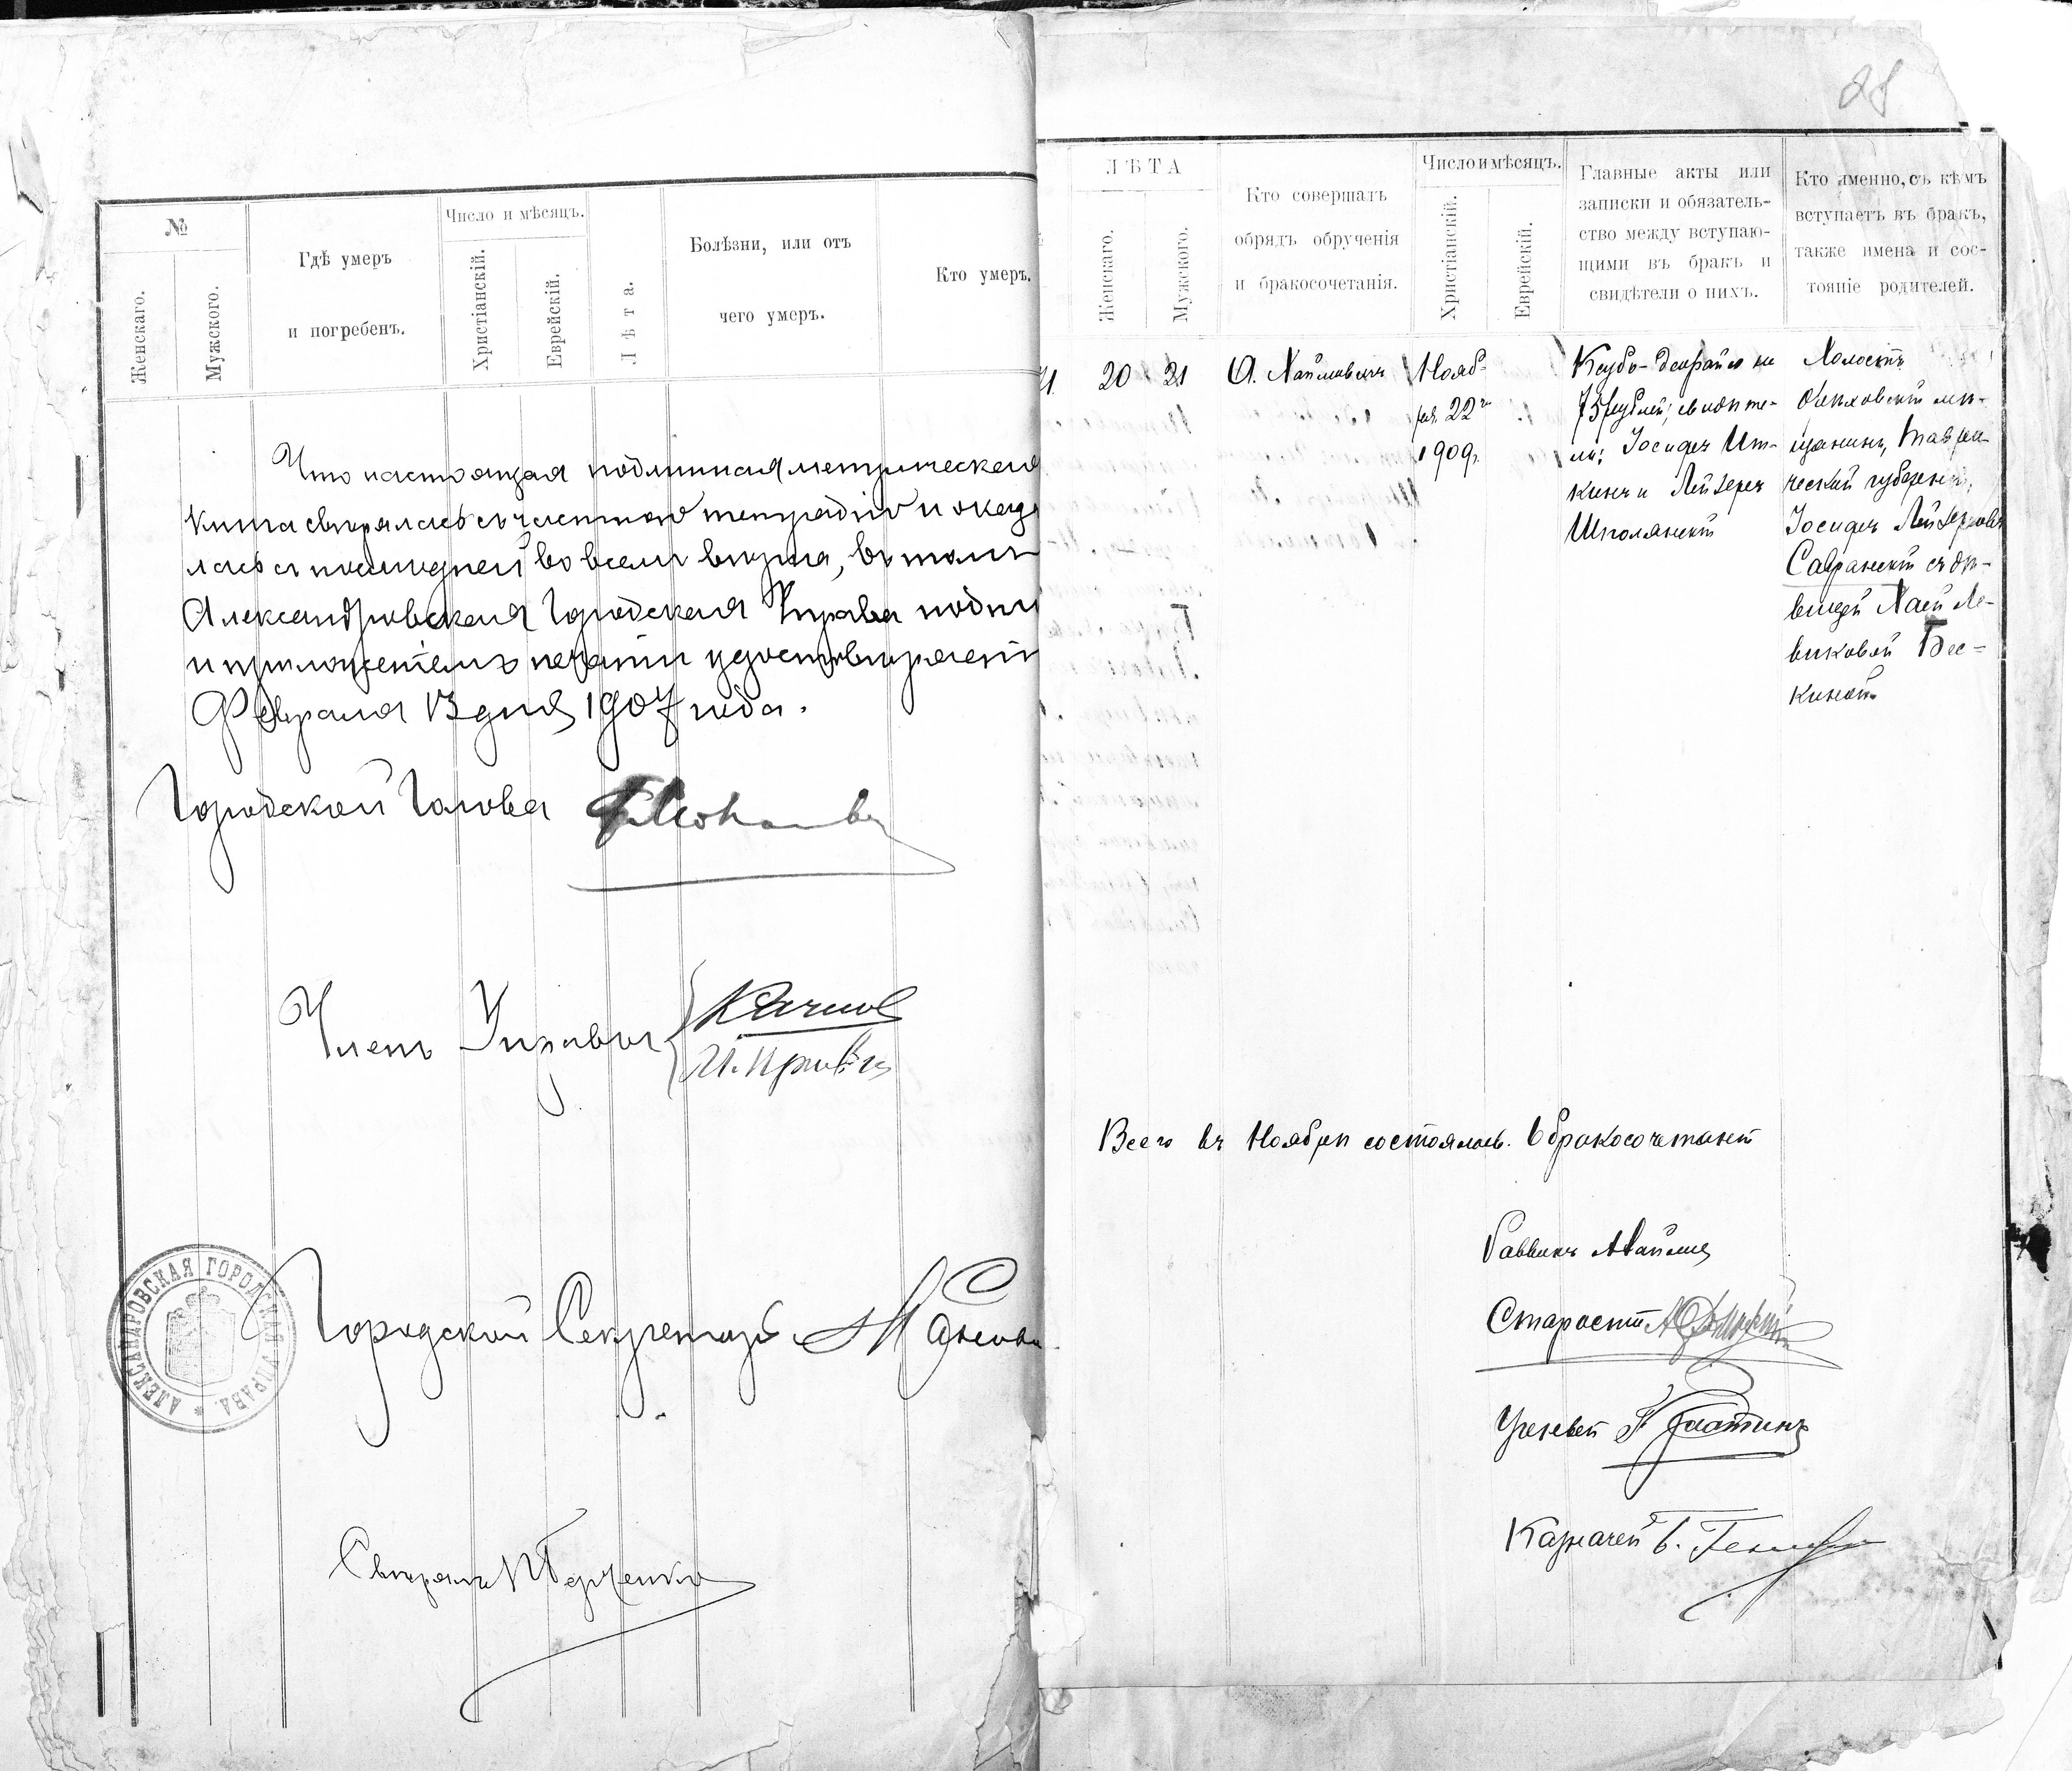 №
Женскаго.
Мужского.
Гдѣ умеръ
и погребенъ.
Число и мѣсяцъ.
Христіанскій.
Еврейскій.
Лѣта.
Болѣзни, или отъ
чего умеръ.
Кто умеръ.
Что настоящая подлинная метрическая
книга свѣрялась съ частною тетрадью и оказа
лась съ послѣдней во всемъ вѣрна, въ томъ
Александровская Городская Управа подпи
и приложеніемъ печати удостовѣряетъ
Февраля 13 дня 1907 года.
Городской Голова
Члены Управы
Городской Секретарь
АЛЕКСАНДРОВСКАЯ ГОРОДСКАЯ УПРАВА
Свѣрялъ
28
ЛѢТА
Женскаго.
Мужского.
Кто совершалъ
обрядъ обрученія
и бракосочетанія.
Число и мѣсяцъ.
Христіанскій.
Еврейскій.
Главные акты или
записки и обязатель-
ство между вступаю-
щими въ бракъ и
свидѣтели о нихъ.
Кто именно, съ кѣмъ
вступаетъ въ бракъ,
также имена и сос-
тояніе родителей.
20
21
А. Хаймовичъ
Нояб-
ря 22го
1909г.
на
75 рублей; свидѣте-
ли: Іосифъ Ит-
кинъ и Лейзеръ
Шполянскій
Холостъ
Орѣховскій мѣ-
щанинъ, Таври-
ческой губерніи,
Іосифъ Лейзеровъ
Савранскій съ дѣ-
вицей Хаей Ле-
виковой Бес-
киной
Всего въ Ноябрѣ состоялось 6 бракосочетаній
Раввинъ
Староста
Ученый
Казначей Б.